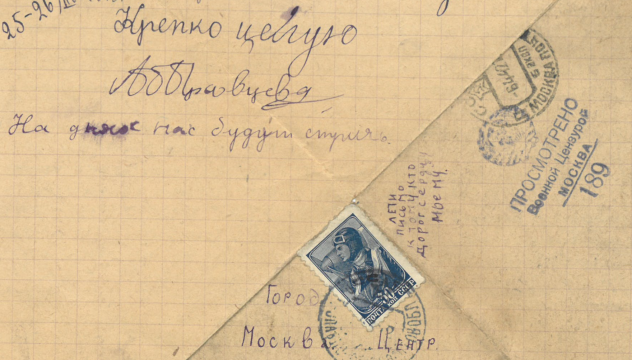 25-26/III
Крепко целую
На днях нас будут стричь.
МОСКВА
ПРОСМОТРЕНО
Военной Цензурой
МОСКВА
189
ЛЕТИ
ПИСЬМО
К ТОМУ КТО
ДОРОГ СЕРДЦУ
МОЕМУ
30
ПОЧТА СССР
Город
Москва Центр.